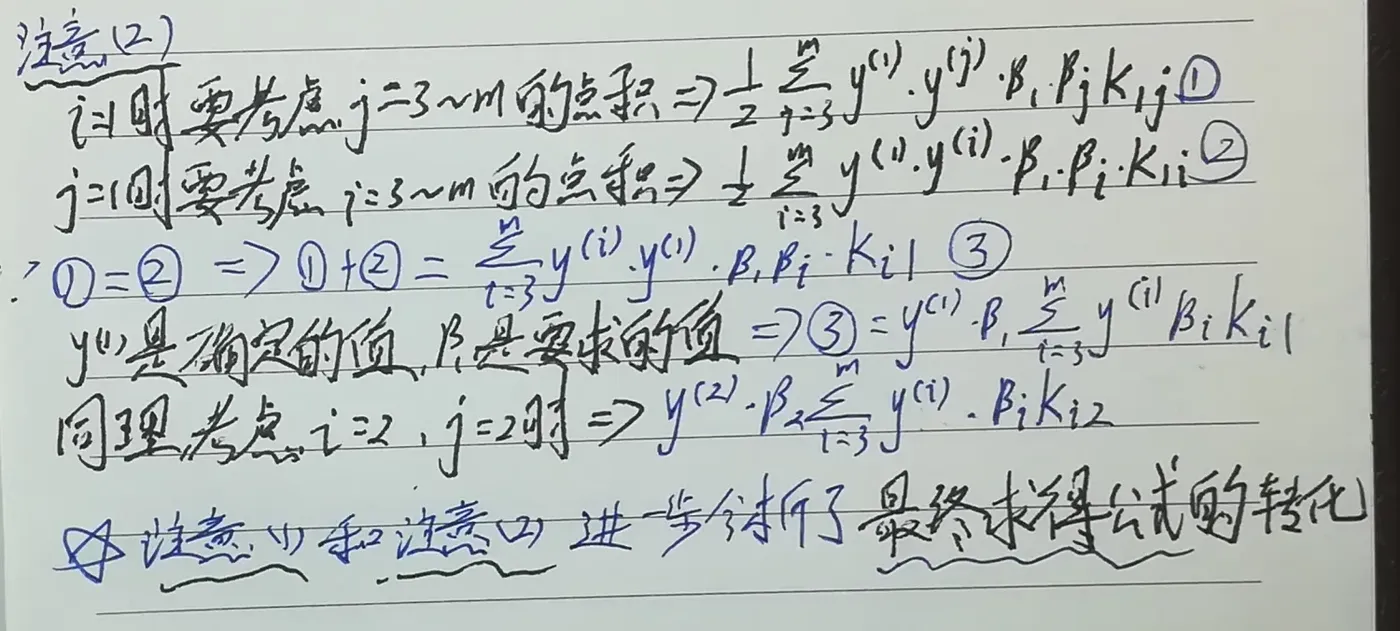 注意(2)
i=1时要考虑j=3~m的点积⇒½∑_{j=3}^{m} y⁽¹⁾·y⁽ʲ⁾·β₁·βⱼK₁ⱼ①
j=1时要考虑i=3~m的点积⇒½∑_{i=3}^{m} y⁽¹⁾·y⁽ⁱ⁾·β₁·βᵢ·K₁ᵢ②
∵①=②⇒①+②=∑_{i=3}^{m} y⁽ⁱ⁾·y⁽¹⁾·β₁βᵢ·Kᵢ₁ ③
y⁽¹⁾是确定的值,β₁是要求的值⇒③=y⁽¹⁾·β₁∑_{i=3}^{m} y⁽ⁱ⁾βᵢKᵢ₁
同理,考虑i=2,j=2时⇒y⁽²⁾·β₂∑_{i=3}^{m} y⁽ⁱ⁾·βᵢKᵢ₂
☆注意(1)和注意(2)进一步分析了最终求得公式的转化